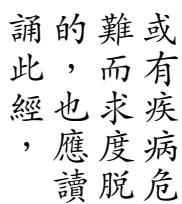 或有疾病危
難而求度脱
的，也應讀
誦此經，